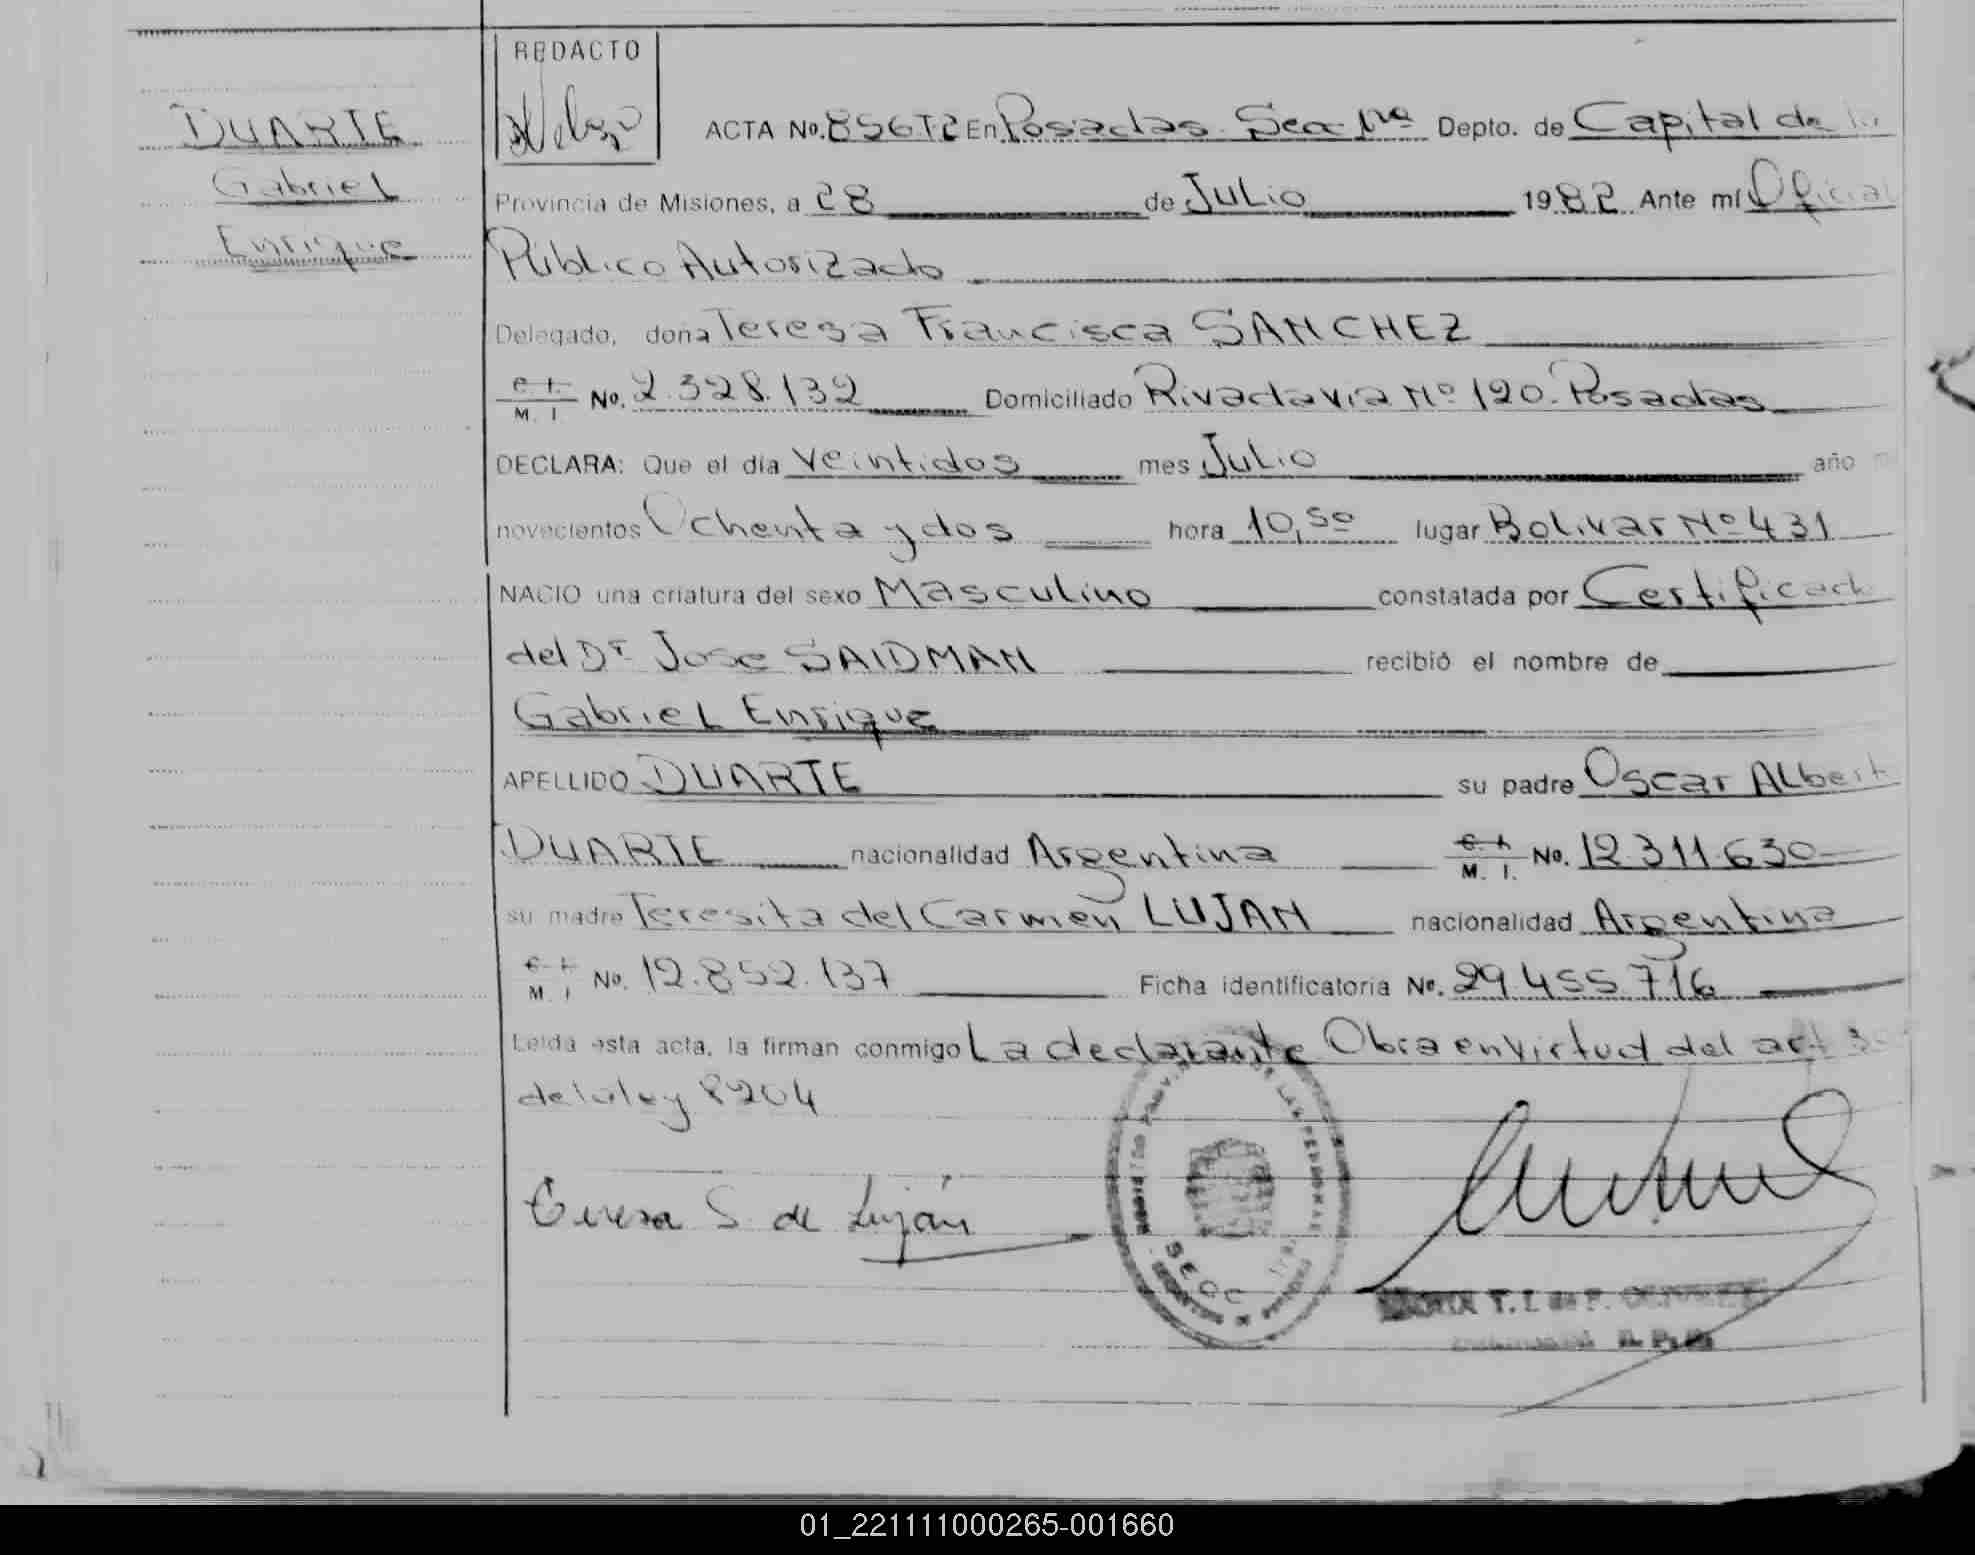 REDACTO
DUARTE
Gabriel
Enrique
ACTA No. 856T2 En Posadas. Sec. 1ra Depto. de Capital de la
Provincia de Misiones, a 28 de Julio 1982 Ante mí Oficial
Público Autorizado
Delegado, doña Teresa Francisca SANCHEZ
C. I. M. I. No. 2.328.132 Domiciliado Rivadavia Nº 120. Posadas
DECLARA: Que el día Veintidos mes Julio año
novecientos Ochenta y dos hora 10,50 lugar Bolivar Nº 431
NACIO una criatura del sexo Masculino constatada por Certificado
del Dr Jose SAIDMAN recibió el nombre de
Gabriel Enrique
APELLIDO DUARTE su padre Oscar Albert
DUARTE nacionalidad Argentina C. I. M. I. No. 12.311.630
su madre Teresita del Carmen LUJAN nacionalidad Argentina
C. I. M. I. No. 12.852.137 Ficha identificatoria No. 29.455.716
Leída esta acta, la firman conmigo La declarante Obra en virtud del art 30
de la ley 8204
Teresa S. de Luján
DE LAS PERSONAS
T. I. de P.
01_221111000265-001660